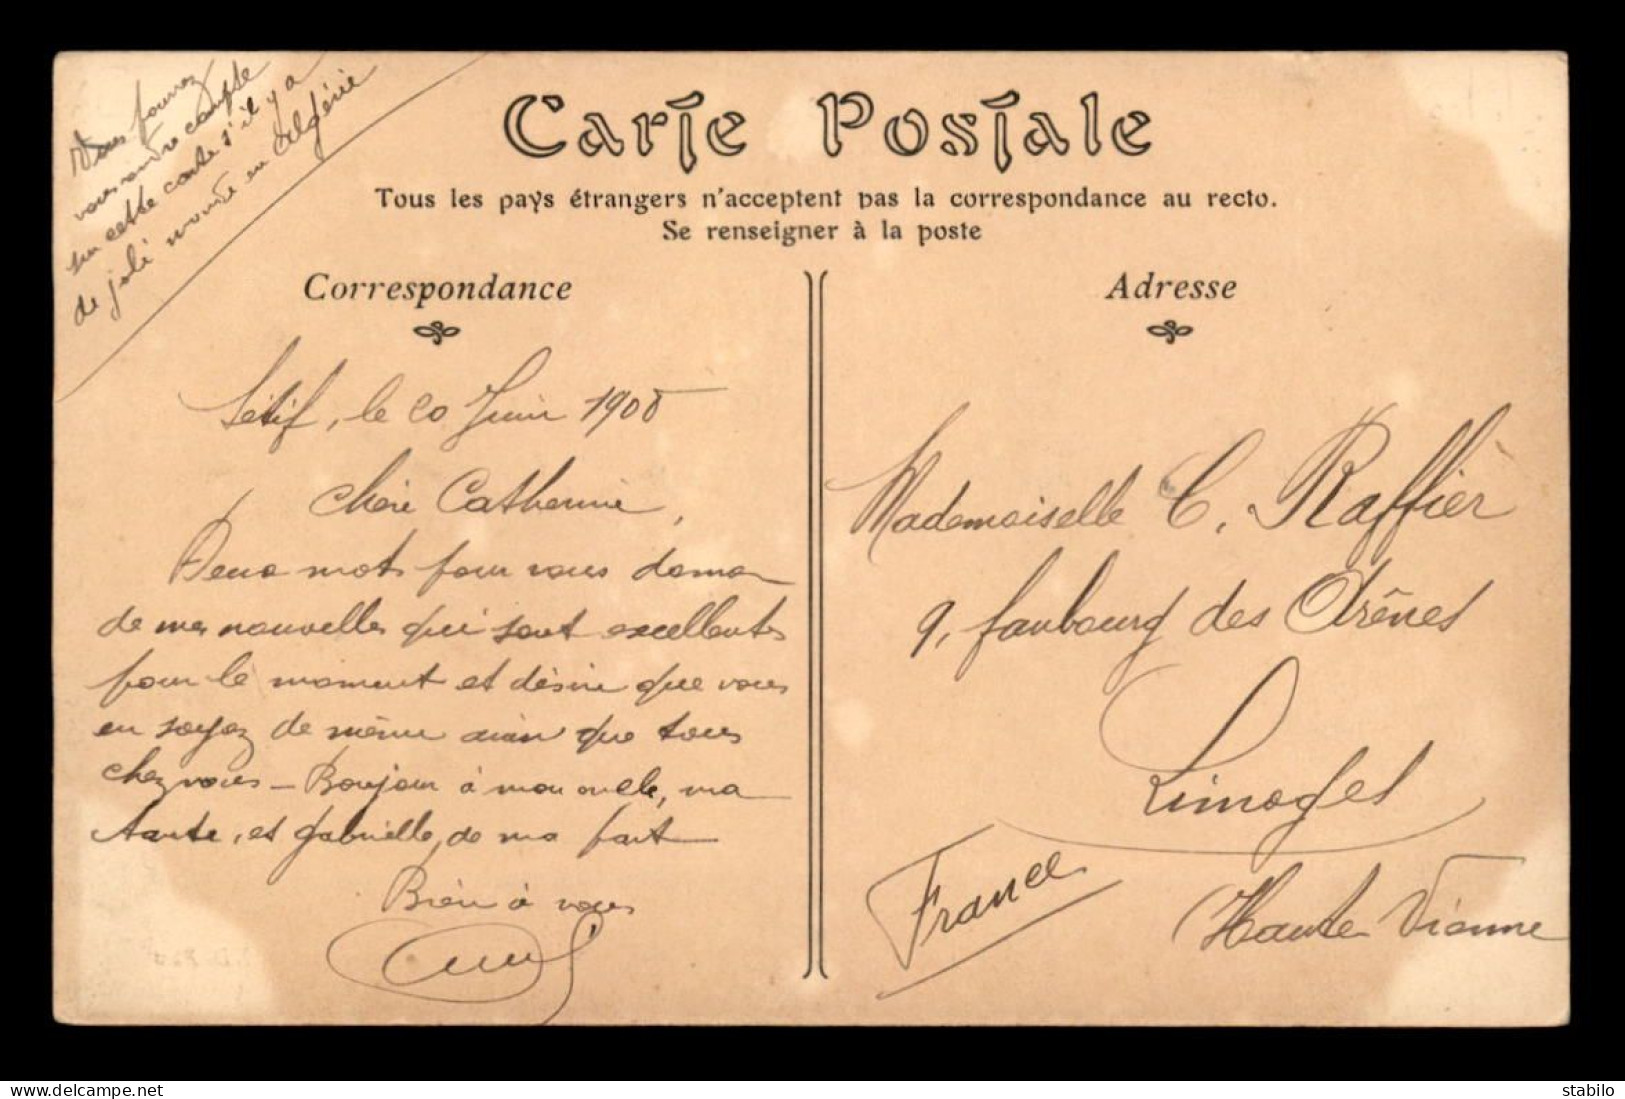 Vous pouvez
vous rendre compte
sur cette carte s'il y a
de joli monde en Algérie
Carte Postale
Tous les pays étrangers n'acceptent pas la correspondance au recto.
Se renseigner à la poste
Correspondance
Sétif, le 20 Juin 1908
Chère Catherine,
Deux mots pour vous donner
de mes nouvelles qui sont excellentes
pour le moment et désire que vous
en soyez de même ainsi que tous
chez vous - Bonjour à mon oncle, ma
tante, et Gabrielle, de ma part
Bien à vous
Adresse
Mademoiselle C. Raffier
9, faubourg des Arênes
Limoges
Haute Vienne
France
stabilo
https://www.delcampe.net